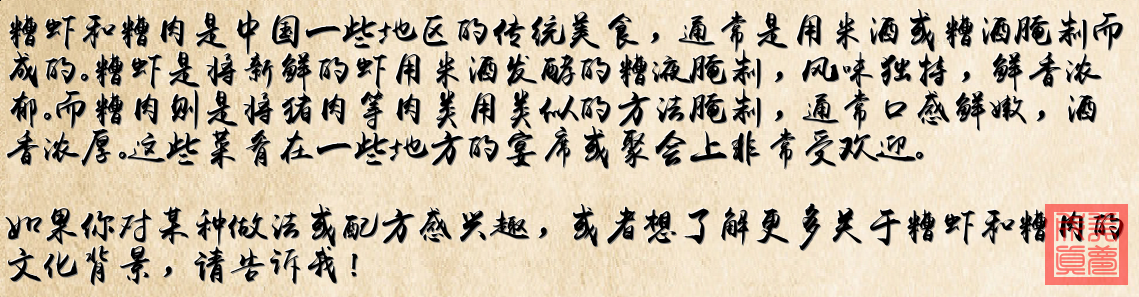 糟虾和糟肉是中国一些地区的传统美食，通常是用米酒或糟酒腌制而
成的。糟虾是将新鲜的虾用米酒发酵的糟液腌制，风味独特，鲜香浓
郁。而糟肉则是将猪肉等肉类用类似的方法腌制，通常口感鲜嫩，酒
香浓厚。这些菜肴在一些地方的宴席或聚会上非常受欢迎。
如果你对某种做法或配方感兴趣，或者想了解更多关于糟虾和糟肉的
文化背景，请告诉我！